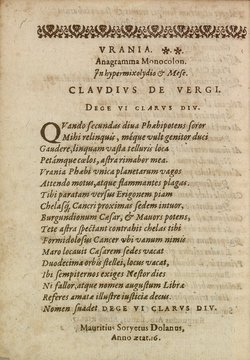 VRANIA. **
Anagramma Monocolon.
In hypermixolydio & Mese.
CLAVDIVS DE VERGI.
DEGE VI CLARVS DIV.
QVando secundas diua Phabipotens soror
Mihi relinqui, méque vult genitor duci
Gaudere, linquam vasta telluris loca
Petámque calos, astra rimabor mea.
Vrania Phabi vnica planetarum vagos
Attendo motus, atque flammantes plagas.
Tibi paratam versus Erigonem piam
Chelasq́; Cancri proximas sedem intuor,
Burgundionum Casar, & Mauors potens,
Tete astra spectant contrahit chelas tibi
Formidolosus Cancer vbi vanum nimis
Maro locauit Casarem sedes vacat
Duodecima orbis stellei, locus vacat,
Ibi sempiternos exiges Mestor dies
Ni fallor, atque nomen augustum Libra
Referes amata illustre iustitia decus.
Nomen suadet DEGE VI CLARVS DIV.
Mauritius Soryetus Dolanus,
Anno ætat. 16.